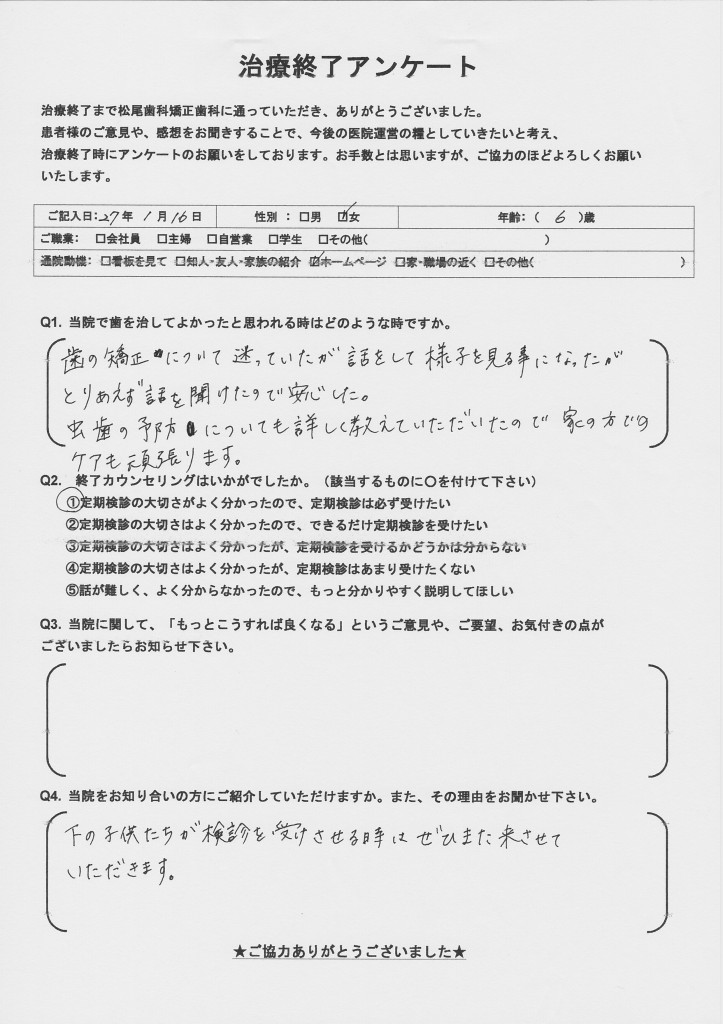 治療終了アンケート
治療終了まで松尾歯科矯正歯科に通っていただき、ありがとうございました。
患者様のご意見や、感想をお聞きすることで、今後の医院運営の糧としていきたいと考え、
治療終了時にアンケートのお願いをしております。お手数とは思いますが、ご協力のほどよろしくお願い
いたします。
ご記入日:27年 1月16日 性別 : □男 ☑女 年齢:( 6 )歳
ご職業: □会社員 □主婦 □自営業 □学生 □その他( )
通院動機: □看板を見て □知人・友人・家族の紹介 ☑ホームページ □家・職場の近く □その他( )
Q1. 当院で歯を治してよかったと思われる時はどのような時ですか。
歯の矯正について迷っていたが話をして様子を見る事になったが
とりあえず話を聞けたので安心した。
虫歯の予防についても詳しく教えていただいたので家の方での
ケアも頑張ります。
Q2. 終了カウンセリングはいかがでしたか。(該当するものに〇を付けて下さい)
①定期検診の大切さがよく分かったので、定期検診は必ず受けたい
②定期検診の大切さはよく分かったので、できるだけ定期検診を受けたい
③定期検診の大切さはよく分かったが、定期検診を受けるかどうかは分からない
④定期検診の大切さはよく分かったが、定期検診はあまり受けたくない
⑤話が難しく、よく分からなかったので、もっと分かりやすく説明してほしい
Q3. 当院に関して、「もっとこうすれば良くなる」というご意見や、ご要望、お気付きの点が
ございましたらお知らせ下さい。
Q4. 当院をお知り合いの方にご紹介していただけますか。また、その理由をお聞かせ下さい。
下の子供たちが検診を受けさせる時はぜひまた来させて
いただきます。
★ご協力ありがとうございました★